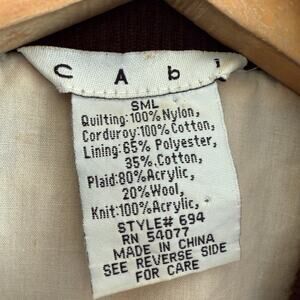 CAbi
SML
Quilting:100% Nylon,
Corduroy:100% Cotton,
Lining: 65% Polyester,
35%.Cotton,
Plaid:80%Acrylic,
20%Wool,
Knit:100%Acrylic,
STYLE# 694
RN 54077
MADE IN CHINA
SEE REVERSE SIDE
FOR CARE